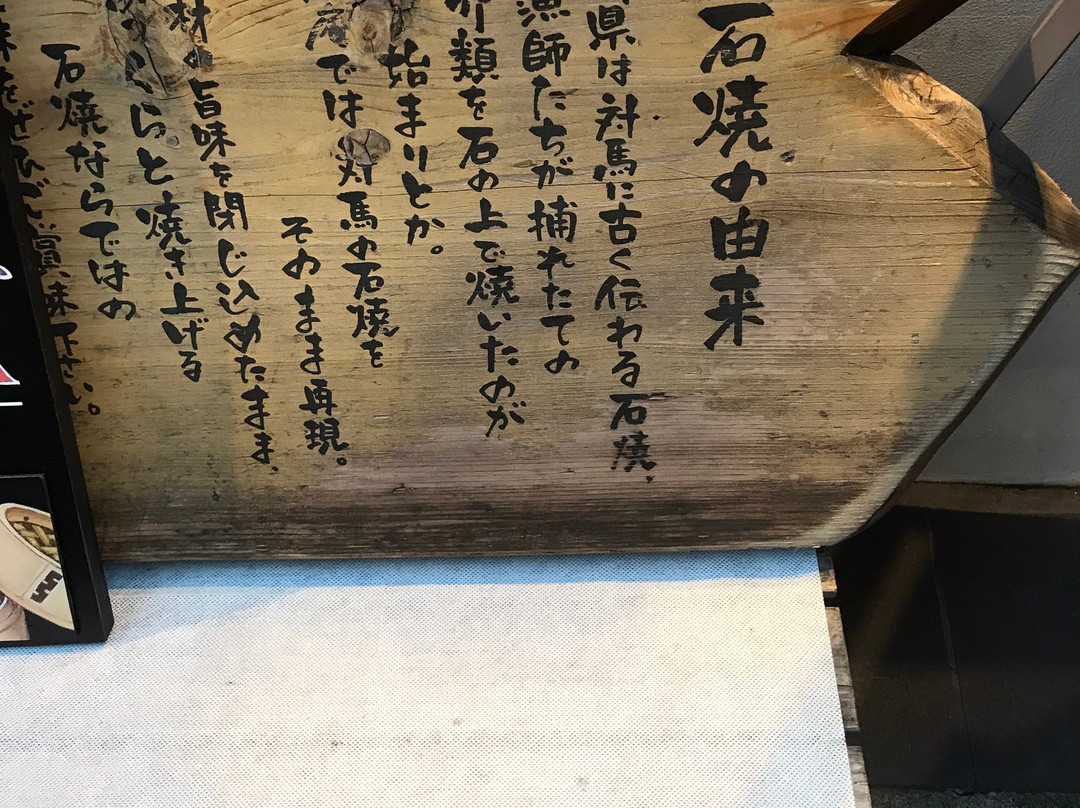 石焼の由来
県は対馬に古く伝わる石焼、
漁師たちが捕れたての
介類を石の上で焼いたのが
始まりとか。
庵では対馬の石焼を
そのまま再現。
材の旨味を閉じ込めたまま、
っくらと焼き上げる
石焼ならではの
味をぜひご賞味下さい。